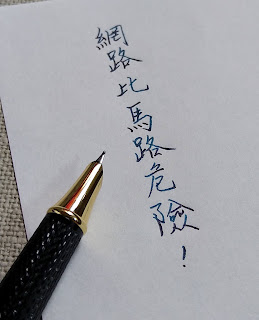 網路比馬路危險！